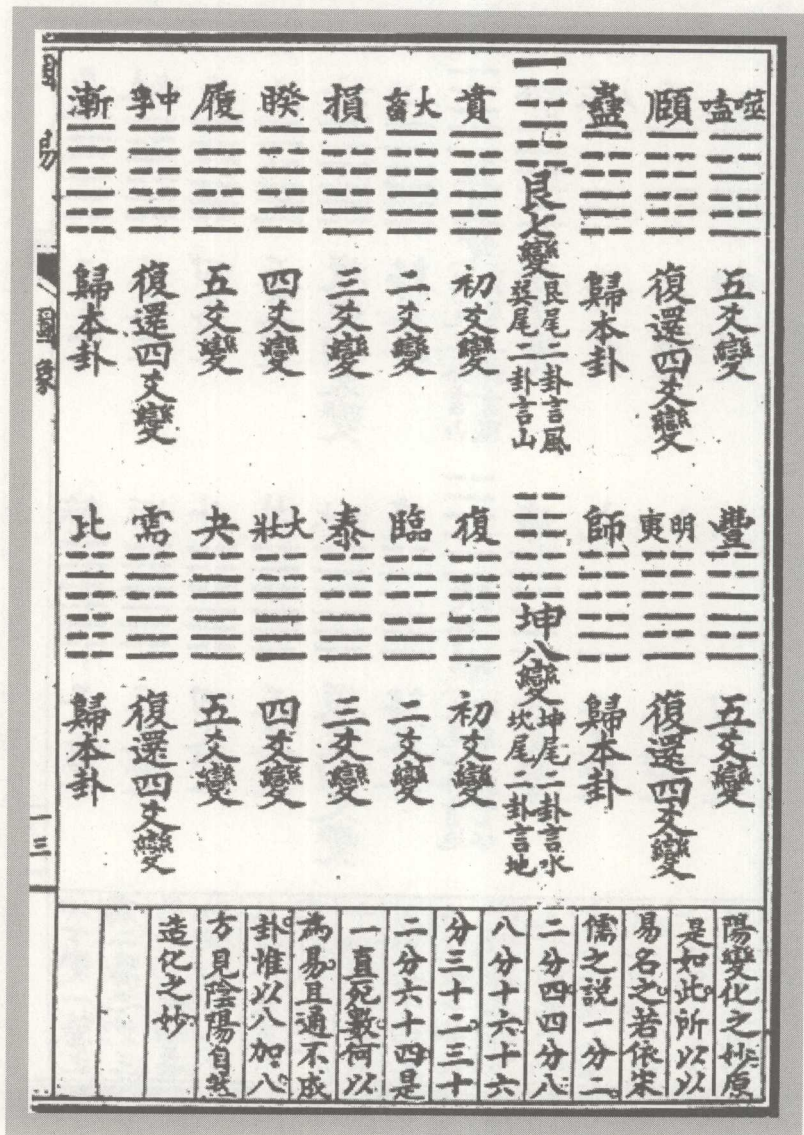 噬嗑 五爻變
頤 復還四爻變
蠱 歸本卦
艮七變 艮尾二卦言風
巽尾二卦言山
賁 初爻變
大畜 二爻變
損 三爻變
睽 四爻變
履 五爻變
中孚 復還四爻變
漸 歸本卦
豐 五爻變
明夷 復還四爻變
師 歸本卦
坤八變 坤尾二卦言水
坎尾二卦言地
復 初爻變
臨 二爻變
泰 三爻變
大壯 四爻變
夬 五爻變
需 復還四爻變
比 歸本卦
陽變化之妙原
是如此所以以
易名之若依宋
儒之説一分二
二分四四分八
八分十六十六
分三十二三十
二分六十四是
一直死數何以
為易且通不成
卦惟以八加八
方見陰陽自然
造化之妙
圖象
一三